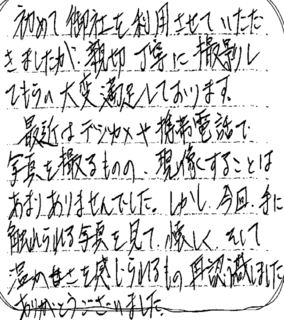 初めて御社を利用させていただ
きましたが、親切丁寧に撮影し
てもらい大変満足しております。
最近はデジカメや携帯電話で
写真を撮るものの、現像することは
あまりありませんでした。しかし、今回、手に
触れられる写真を見て、懐しく、そして
温かさを感じられるもの再認識しました
ありがとうございました。